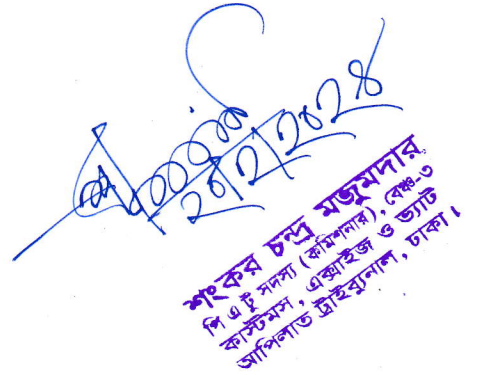 ২০/২/২০২৪
শংকর চন্দ্র মজুমদার
পি এ টু সদস্য (কমিশনার), বেঞ্চ-৩
কাস্টমস, এক্সাইজ ও ভ্যাট
আপিলাত ট্রাইব্যুনাল, ঢাকা।